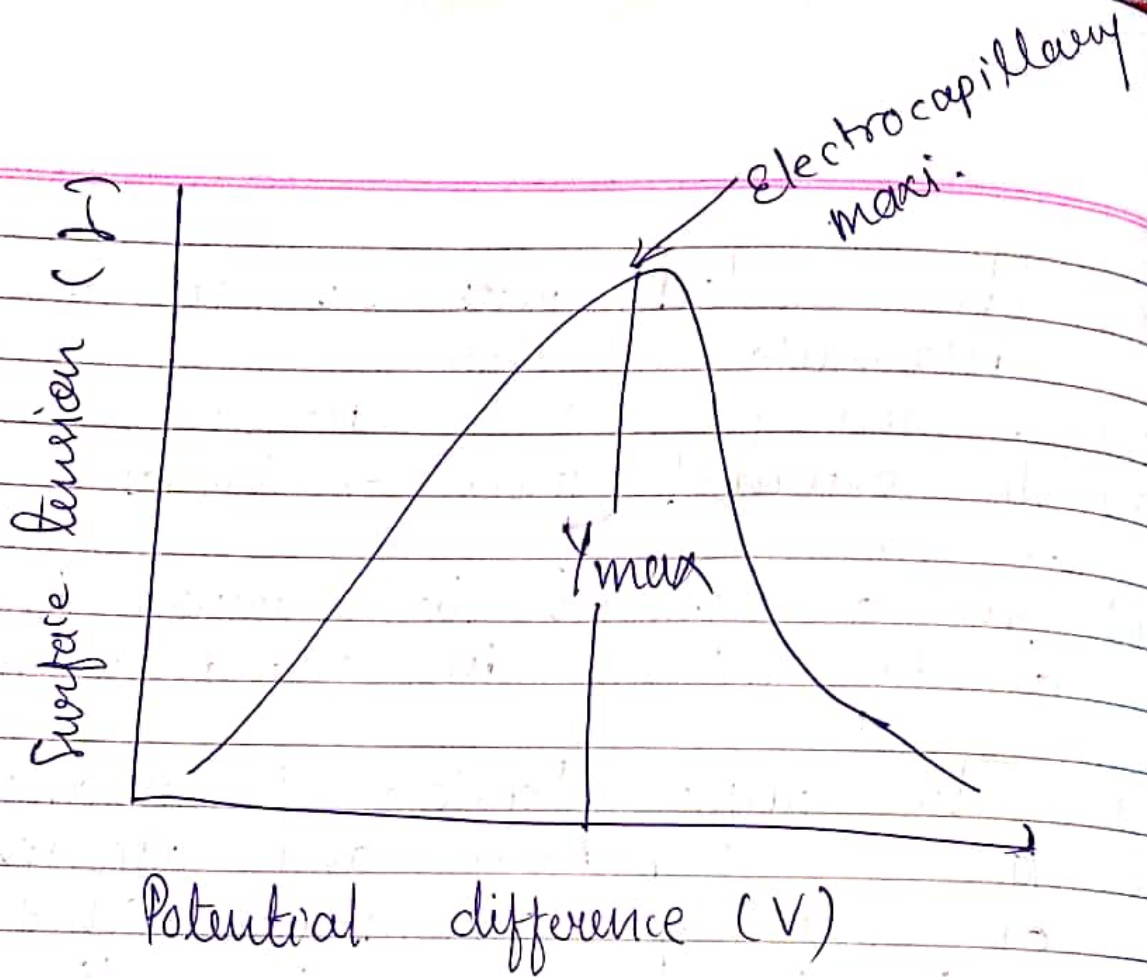 Electrocapillary
maxi.
Surface tension (γ)
Ymax
Potential difference (V)